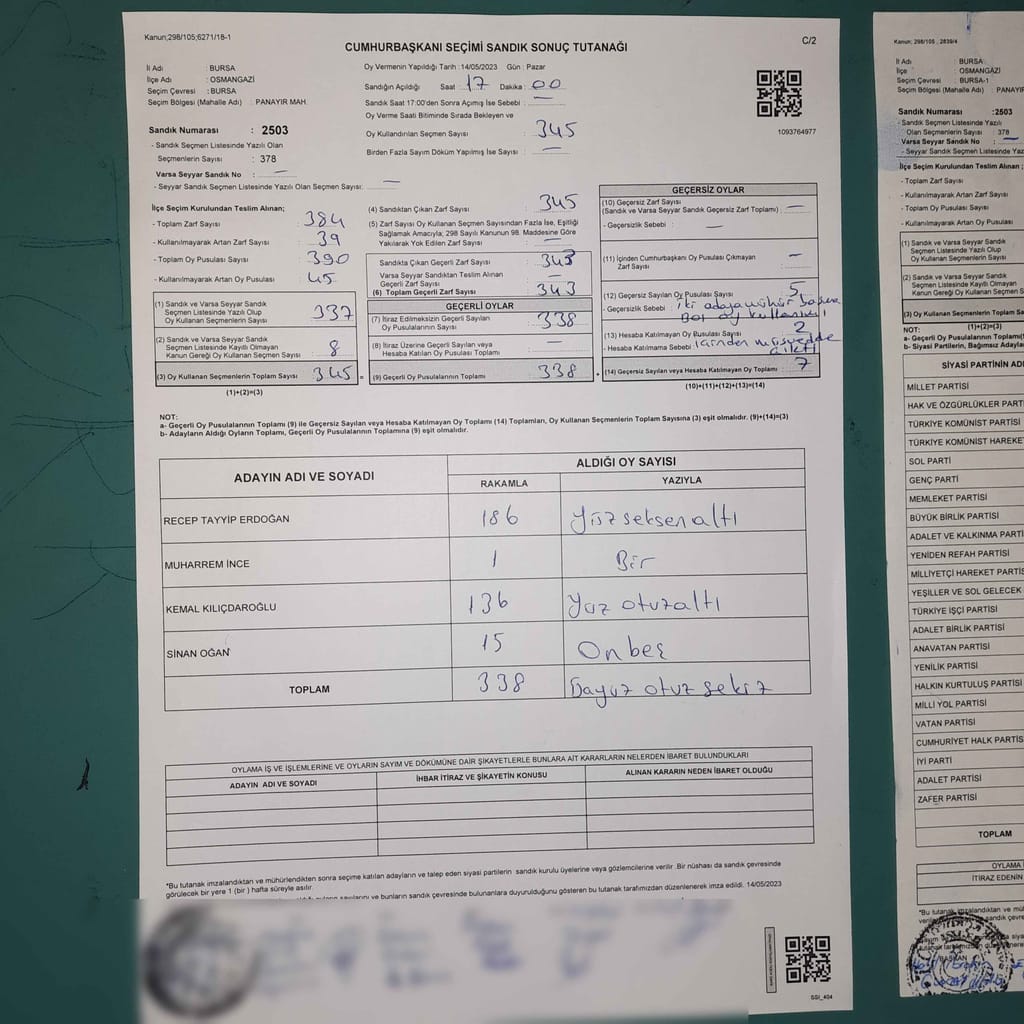 Kanun;298/105;6271/18-1
C/2
CUMHURBAŞKANI SEÇİMİ SANDIK SONUÇ TUTANAĞI
İl Adı : BURSA
İlçe Adı : OSMANGAZİ
Seçim Çevresi : BURSA
Seçim Bölgesi (Mahalle Adı) : PANAYIR MAH.
Sandık Numarası : 2503
- Sandık Seçmen Listesinde Yazılı Olan
Seçmenlerin Sayısı : 378
Varsa Seyyar Sandık No : —
- Seyyar Sandık Seçmen Listesinde Yazılı Olan Seçmen Sayısı: —
Oy Vermenin Yapıldığı Tarih : 14/05/2023 Gün : Pazar
Sandığın Açıldığı Saat : 17 Dakika : 00
Sandık Saat 17:00'den Sonra Açımış İse Sebebi : —
Oy Verme Saati Bitiminde Sırada Bekleyen ve
Oy Kullandırılan Seçmen Sayısı : 345
Birden Fazla Sayım Döküm Yapılmış İse Sayısı : —
1093764977
İlçe Seçim Kurulundan Teslim Alınan;
- Toplam Zarf Sayısı : 384
- Kullanılmayarak Artan Zarf Sayısı : 39
- Toplam Oy Pusulası Sayısı : 390
- Kullanılmayarak Artan Oy Pusulası : 45
(1) Sandık ve Varsa Seyyar Sandık
Seçmen Listesinde Yazılı Olup
Oy Kullanan Seçmenlerin Sayısı : 337
(2) Sandık ve Varsa Seyyar Sandık
Seçmen Listesinde Kayıtlı Olmayan
Kanun Gereği Oy Kullanan Seçmen Sayısı : 8
(3) Oy Kullanan Seçmenlerin Toplam Sayısı : 345 =
(1)+(2)=(3)
(4) Sandıktan Çıkan Zarf Sayısı : 345
(5) Zarf Sayısı Oy Kullanan Seçmen Sayısından Fazla İse, Eşitliği
Sağlamak Amacıyla; 298 Sayılı Kanunun 98. Maddesine Göre
Yakılarak Yok Edilen Zarf Sayısı : —
Sandıkta Çıkan Geçerli Zarf Sayısı : 343
Varsa Seyyar Sandıktan Teslim Alınan
Geçerli Zarf Sayısı : —
(6) Toplam Geçerli Zarf Sayısı : 343
GEÇERLİ OYLAR
(7) İtiraz Edilmeksizin Geçerli Sayılan
Oy Pusulalarının Sayısı : 338
(8) İtiraz Üzerine Geçerli Sayılan veya
Hesaba Katılan Oy Pusulası Toplamı : —
(9) Geçerli Oy Pusulalarının Toplamı : 338 +
GEÇERSİZ OYLAR
(10) Geçersiz Zarf Sayısı
(Sandık ve Varsa Seyyar Sandık Geçersiz Zarf Toplamı) : —
- Geçersizlik Sebebi : —
(11) İçinden Cumhurbaşkanı Oy Pusulası Çıkmayan
Zarf Sayısı : —
(12) Geçersiz Sayılan Oy Pusulası Sayısı : 5
- Geçersizlik Sebebi : iki adaya mühür basma
Boş oy kullanımı
(13) Hesaba Katılmayan Oy Pusulası Sayısı : 2
- Hesaba Katılmama Sebebi : içinden müsvedde
çıktı
(14) Geçersiz Sayılan veya Hesaba Katılmayan Oy Toplamı : 7
(10)+(11)+(12)+(13)=(14)
NOT:
a- Geçerli Oy Pusulalarının Toplamı (9) ile Geçersiz Sayılan veya Hesaba Katılmayan Oy Toplamı (14) Toplamları, Oy Kullanan Seçmenlerin Toplam Sayısına (3) eşit olmalıdır. (9)+(14)=(3)
b- Adayların Aldığı Oyların Toplamı, Geçerli Oy Pusulalarının Toplamına (9) eşit olmalıdır.
ADAYIN ADI VE SOYADI
ALDIĞI OY SAYISI
RAKAMLA YAZIYLA
RECEP TAYYİP ERDOĞAN 186 Yüz seksen altı
MUHARREM İNCE 1 Bir
KEMAL KILIÇDAROĞLU 136 Yüz otuz altı
SİNAN OĞAN 15 On beş
TOPLAM 338 otuz sekiz
OYLAMA İŞ VE İŞLEMLERİNE VE OYLARIN SAYIM VE DÖKÜMÜNE DAİR ŞİKAYETLERLE BUNLARA AİT KARARLARIN NELERDEN İBARET BULUNDUKLARI
ADAYIN ADI VE SOYADI İHBAR İTİRAZ VE ŞİKAYETİN KONUSU ALINAN KARARIN NEDEN İBARET OLDUĞU
*Bu tutanak imzalandıktan ve mühürlendikten sonra seçime katılan adayların ve talep eden siyasi partilerin sandık kurulu üyelerine veya gözlemcilerine verilir .Bir nüshası da sandık çevresinde
görülecek bir yere 1 (bir ) hafta süreyle asılır.
sayılarını ve bunların sandık çevresinde bulunanlara duyurulduğunu gösteren bu tutanak tarafımızdan düzenlenerek imza edildi. 14/05/2023
SSİ_404
Kanun; 298/105 , 2839/4
İl Adı : BURSA
İlçe : OSMANGAZİ
Seçim Çevresi : BURSA-1
Seçim Bölgesi (Mahalle Adı) : PANAYIR
Sandık Numarası :2503
- Sandık Seçmen Listesinde Yazılı
Olan Seçmenlerin Sayısı : 378
Varsa Seyyar Sandık No : —
- Seyyar Sandık Seçmen Listesinde Yazılı
İlçe Seçim Kurulundan Teslim Alınan;
- Toplam Zarf Sayısı
- Kullanılmayarak Artan Zarf Sayısı
- Toplam Oy Pusulası Sayısı
- Kullanılmayarak Artan Oy Pusulası
(1) Sandık ve Varsa Seyyar Sandık
Seçmen Listesinde Yazılı Olup
Oy Kullanan Seçmenlerin Sayısı
(2) Sandık ve Varsa Seyyar Sandık
Seçmen Listesinde Kayıtlı Olmayan
Kanun Gereği Oy Kullanan Seçmen S
(3) Oy Kullanan Seçmenlerin Toplam Sa
(1)+(2)=(3)
NOT:
a- Geçerli Oy Pusulalarının Toplamı(
b- Siyasi Partilerin, Bağımsız Adayla
SİYASİ PARTİNİN AD
MİLLET PARTİSİ
HAK VE ÖZGÜRLÜKLER PART
TÜRKİYE KOMÜNİST PARTİSİ
TÜRKİYE KOMÜNİST HAREKET
SOL PARTİ
GENÇ PARTİ
MEMLEKET PARTİSİ
BÜYÜK BİRLİK PARTİSİ
ADALET VE KALKINMA PARTİ
YENİDEN REFAH PARTİSİ
MİLLİYETÇİ HAREKET PARTİS
YEŞİLLER VE SOL GELECEK
TÜRKİYE İŞÇİ PARTİSİ
ADALET BİRLİK PARTİSİ
ANAVATAN PARTİSİ
YENİLİK PARTİSİ
HALKIN KURTULUŞ PARTİSİ
MİLLİ YOL PARTİSİ
VATAN PARTİSİ
CUMHURİYET HALK PARTİS
İYİ PARTİ
ADALET PARTİSİ
ZAFER PARTİSİ
TOPLAM
OYLAMA İ
İTİRAZ EDENİN
*Bu tutanak imzalandıktan ve mü
BAŞKAN